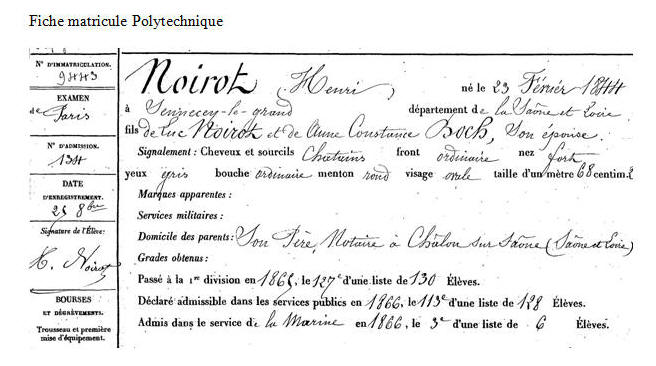 Fiche matricule Polytechnique
N° D'IMMATRICULATION.
9443
EXAMEN
de Paris
N° D'ADMISSION.
134
DATE
D'ENREGISTREMENT.
25 8bre
Signature de l'Élève:
H. Noirot
BOURSES
ET DÉGRÈVEMENTS.
Trousseau et première
mise d'équipement.
Noirot (Henri) né le 23 Février 1844
à Sennecey-le-grand département de la Saône et Loire
fils de Luc Noirot et de Anne Constance Boch, Son épouse.
Signalement: Cheveux et sourcils Châtains front ordinaire nez fort
yeux gris bouche ordinaire menton rond visage ovale taille d'un mètre 68 centim. 2
Marques apparentes:
Services militaires:
Domicile des parents: Son Père, Notaire à Châlon sur Saône (Saône et Loire)
Grades obtenus:
Passé à la 1re division en 1865, le 127e d'une liste de 130 Élèves.
Déclaré admissible dans les services publics en 1866, le 113e d'une liste de 128 Élèves.
Admis dans le service de la Marine en 1866, le 3e d'une liste de 6 Élèves.